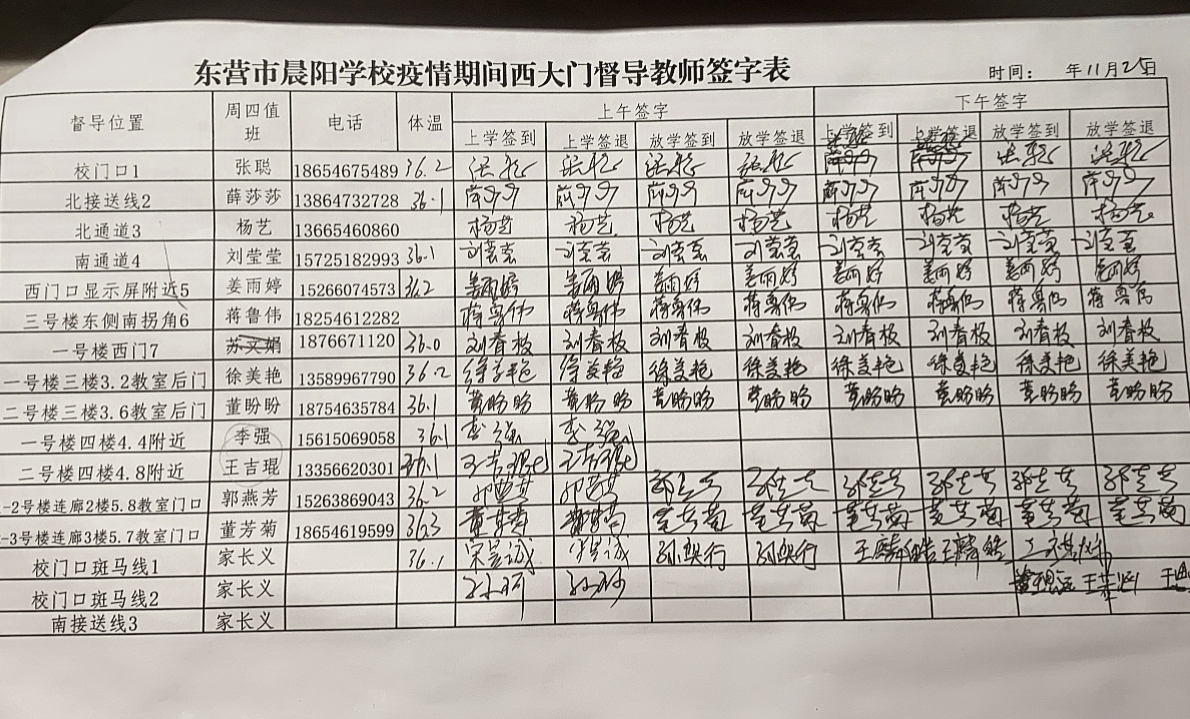 东营市晨阳学校疫情期间西大门督导教师签字表
时间： 年11月25日
督导位置 周四值班 电话 体温 上午签字 下午签字
上学签到 上学签退 放学签到 放学签退 上学签到 上学签退 放学签到 放学签退
校门口1 张聪 18654675489 36.2
北接送线2 薛莎莎 13864732728 36.1
北通道3 杨艺 13665460860 杨艺 杨艺 杨艺 杨艺 杨艺 杨艺 杨艺 杨艺
南通道4 刘莹莹 15725182993 36.1 刘莹莹 刘莹莹 刘莹莹 刘莹莹 刘莹莹 刘莹莹 刘莹莹 刘莹莹
西门口显示屏附近5 姜雨婷 15266074573 36.2 姜雨婷 姜雨婷 姜雨婷 姜雨婷 姜雨婷 姜雨婷 姜雨婷 姜雨婷
三号楼东侧南拐角6 蒋鲁伟 18254612282 蒋鲁伟 蒋鲁伟 蒋鲁伟 蒋鲁伟 蒋鲁伟 蒋鲁伟 蒋鲁伟 蒋鲁伟
一号楼西门7 苏文娟 1876671120 36.0 刘春枝 刘春枝 刘春枝 刘春枝 刘春枝 刘春枝 刘春枝 刘春枝
一号楼三楼3.2教室后门 徐美艳 13589967790 36.2 徐美艳 徐美艳 徐美艳 徐美艳 徐美艳 徐美艳 徐美艳 徐美艳
二号楼三楼3.6教室后门 董盼盼 18754635784 36.1 董盼盼 董盼盼 董盼盼 董盼盼 董盼盼 董盼盼 董盼盼 董盼盼
一号楼四楼4.4附近 李强 15615069058 36.1 李强 李强
二号楼四楼4.8附近 王吉琨 13356620301 36.1 王吉琨 王吉琨
1-2号楼连廊2楼5.8教室门口 郭燕芳 15263869043 36.2
2-3号楼连廊3楼5.7教室门口 董芳菊 18654619599 36.3
校门口斑马线1 家长义 36.1
校门口斑马线2 家长义
南接送线3 家长义